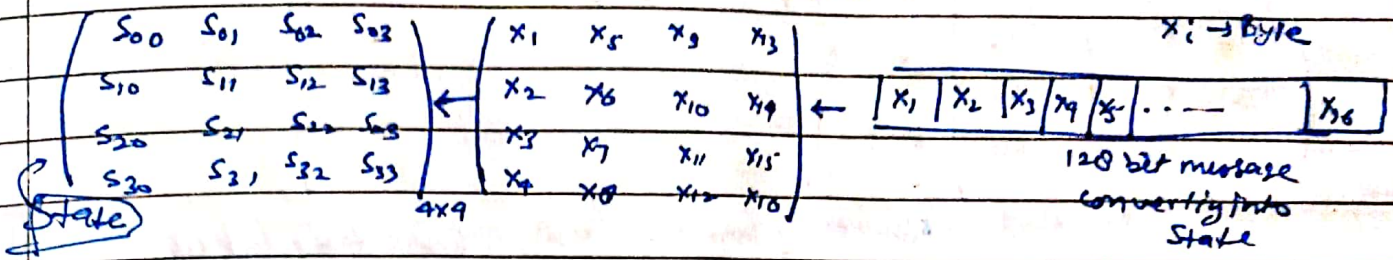 S00 S01 S02 S03
S10 S11 S12 S13
S20 S21 S22 S23
S30 S31 S32 S33
4x4
State
←
x1 x5 x9 x13
x2 x6 x10 x14
x3 x7 x11 x15
x4 x8 x12 x16
←
xi → Byte
x1 x2 x3 x4 x5 ..... x16
128 bit message
converting into
State